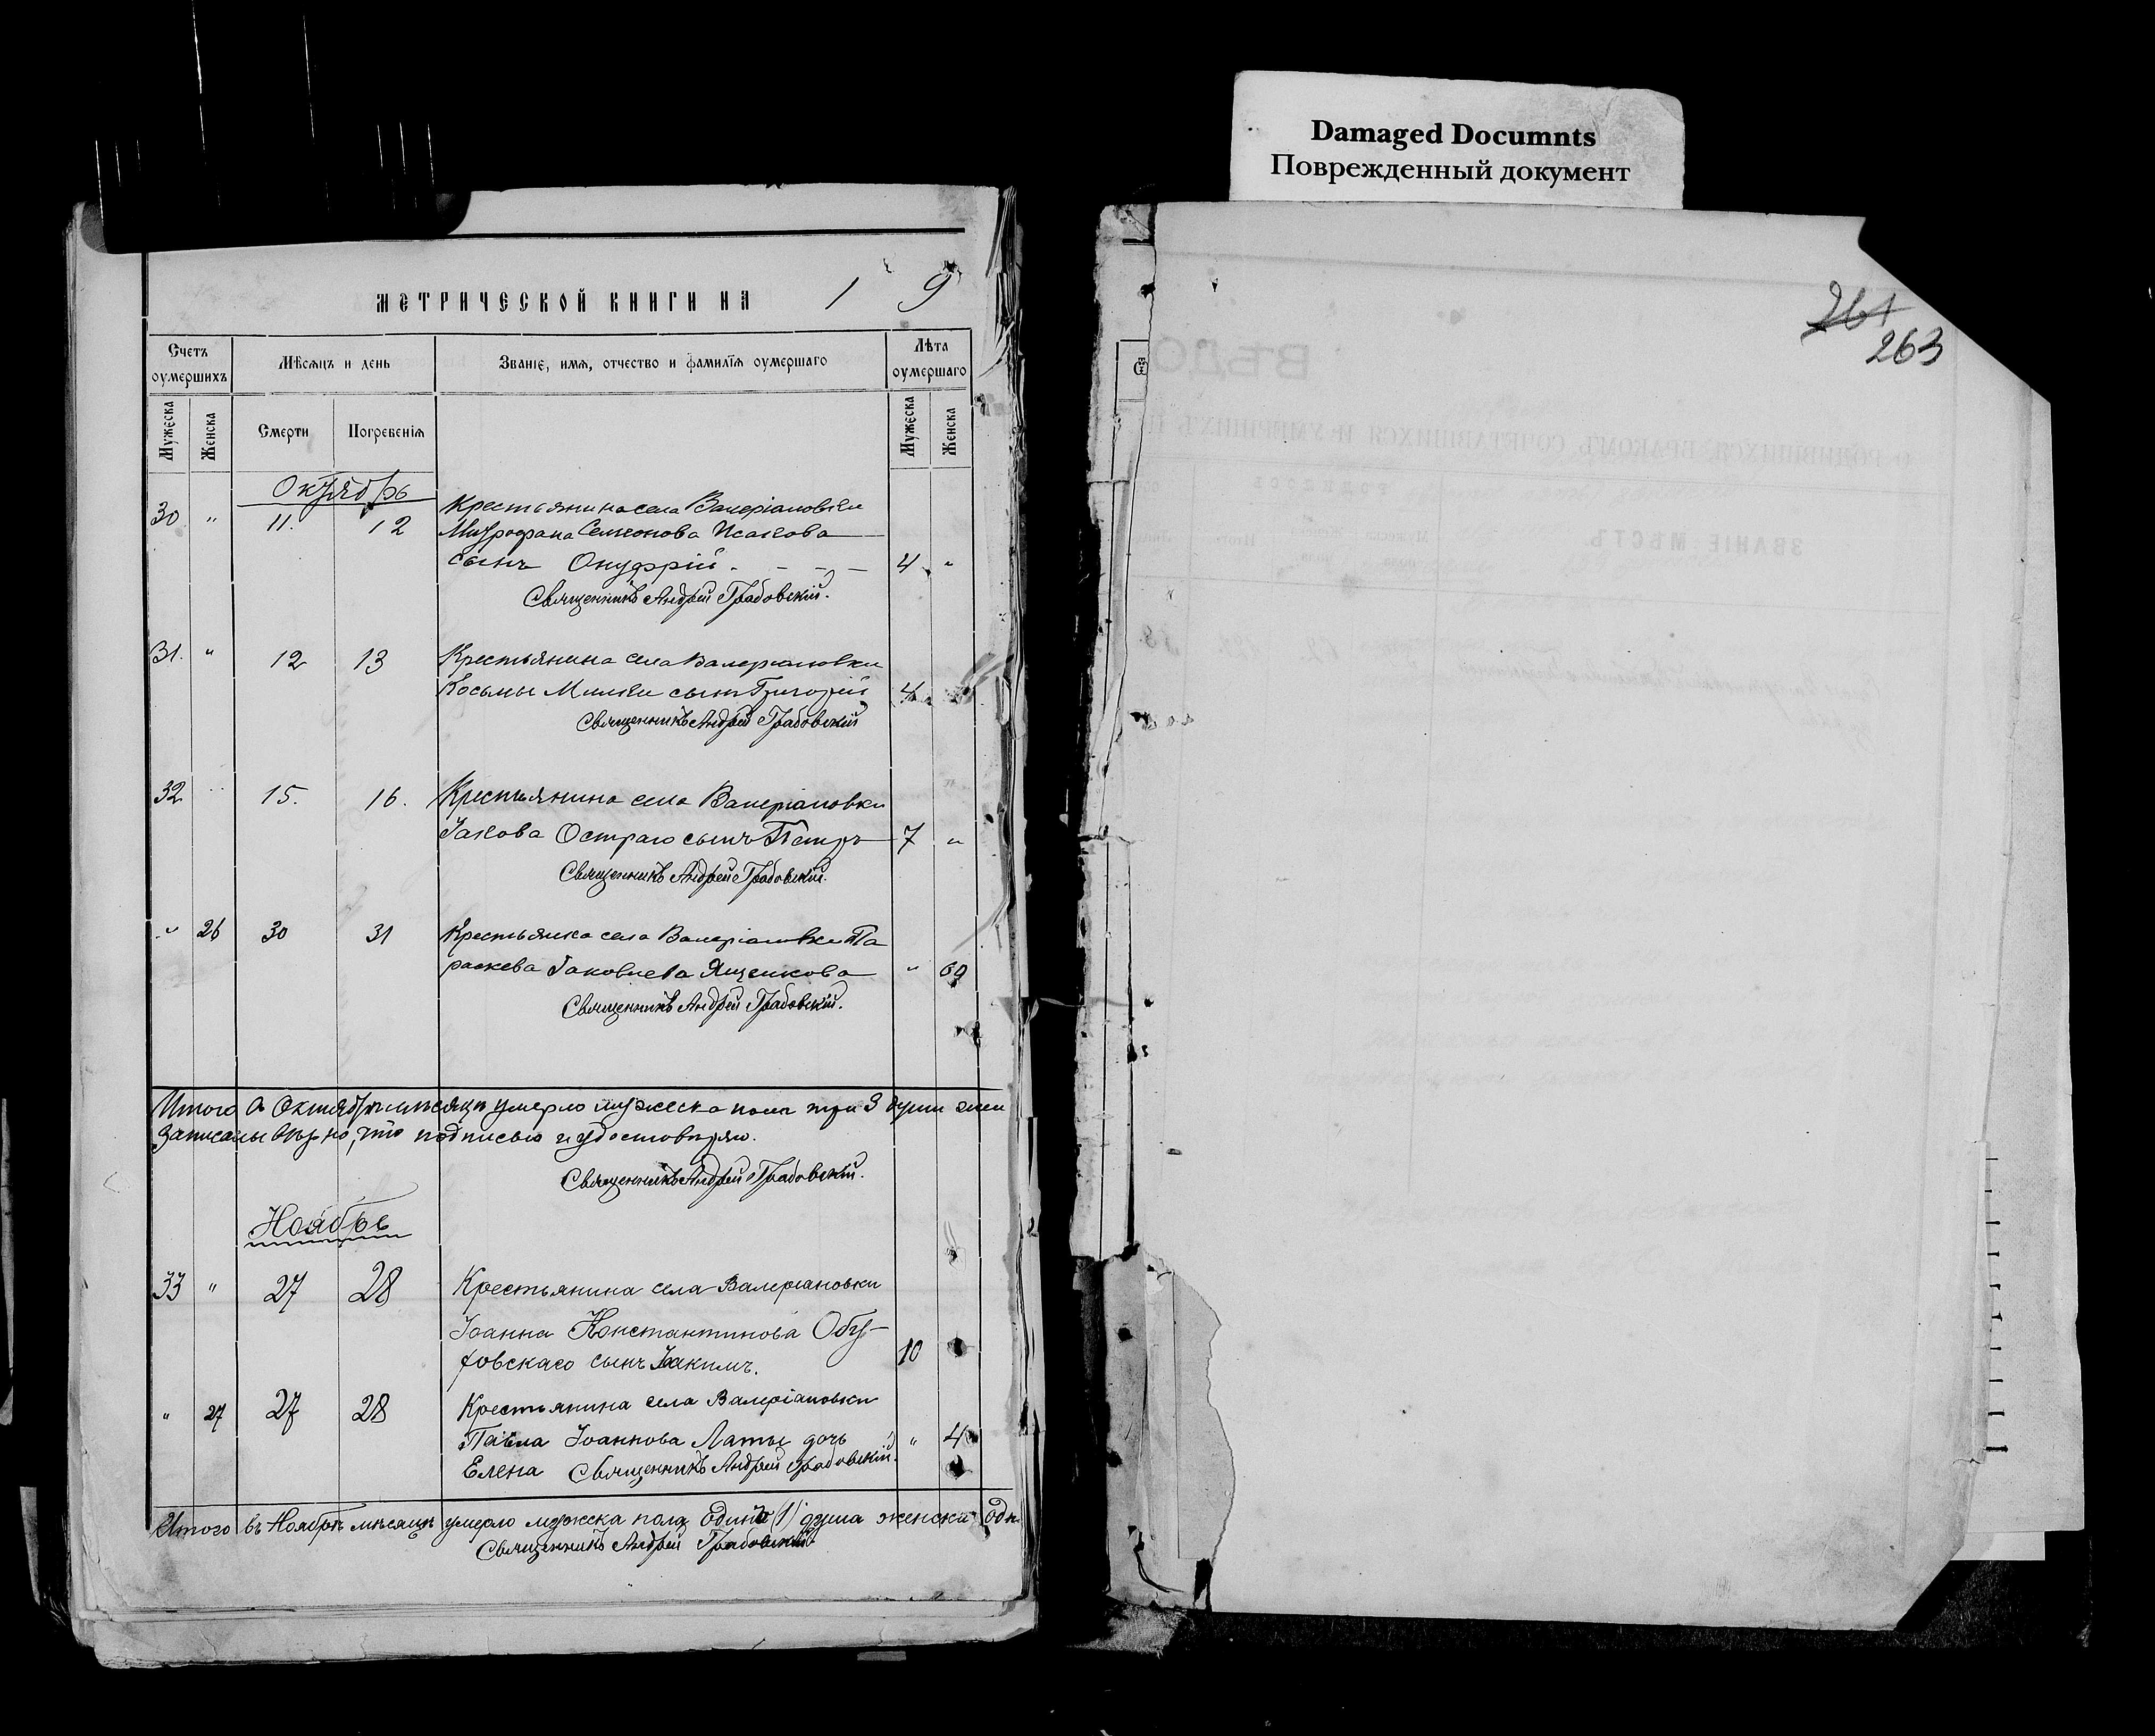 Damaged Documnts
Поврежденный документ
МЕТРИЧЕСКОЙ КНИГИ НА 1 9
Счетъ оумершихъ
Мѣсяцъ и день
Званіе, имя, отчество и фамилія оумершаго
Лѣта оумершаго
Мужеска
Женска
Смерти
Погребенія
Мужеска
Женска
Октябрь
30 " 11. 12 Крестьянина села Валеріановки
Митрофана Семенова Исакова
сынъ Онуфрій - - - - 4 "
Священникъ Андрей Грабовскій.
31. " 12 13 Крестьянина села Валеріановки
Косьмы сынъ Григорій 4
Священникъ Андрей Грабовскій
32 " 15. 16. Крестьянина села Валеріановки
Іакова Остраго сынъ Петръ 7 "
Священникъ Андрей Грабовскій.
" 26 30 31 Крестьянка села Валеріановки Па
раскева Іаковлева Ященкова " 69
Священникъ Андрей Грабовскій.
Итого Октябрѣ мѣсяцѣ умерло мужеска пола три 3 души жен
записаны вѣрно, что подписью и удостовѣряю.
Священникъ Андрей Грабовскій.
Ноябрь
33 " 27 28 Крестьянина села Валеріановки
Іоанна Константинова Обу-
ховскаго сынъ Іоакимъ. 10
" 27 27 28 Крестьянина села Валеріановки
Павла Іоаннова Латы дочь " 4
Елена Священникъ Андрей Грабовскій.
Итого въ Ноябрѣ мѣсяцѣ умерло мужеска пола одинъ (1) душа женска одн
Священникъ Андрей Грабовскій
261
263